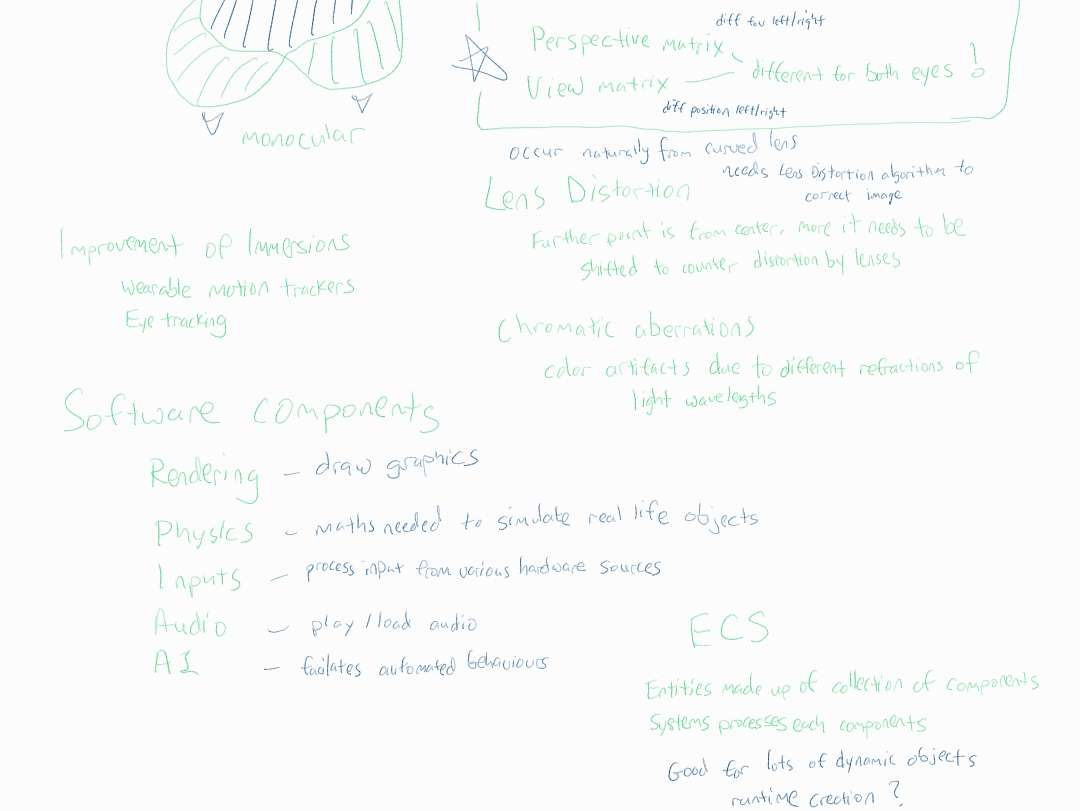 diff fov left/right
Perspective matrix
View matrix
different for both eyes !
diff position left/right
monocular
occur naturally from curved lens
needs Lens Distortion algorithm to
correct image
Lens Distortion
Further point is from center, more it needs to be
shifted to counter distortion by lenses
Improvement of Immersions
Wearable motion trackers
Eye tracking
Chromatic aberrations
color artifacts due to different refractions of
light wavelegths
Software components
Rendering – draw graphics
Physics – maths needed to simulate real life objects
Inputs – process input from various hardware sources
Audio – play/load audio
AI – facilates automated behaviours
ECS
Entities made up of collection of components
Systems processes each components
Good for lots of dynamic objects
runtime creation ?